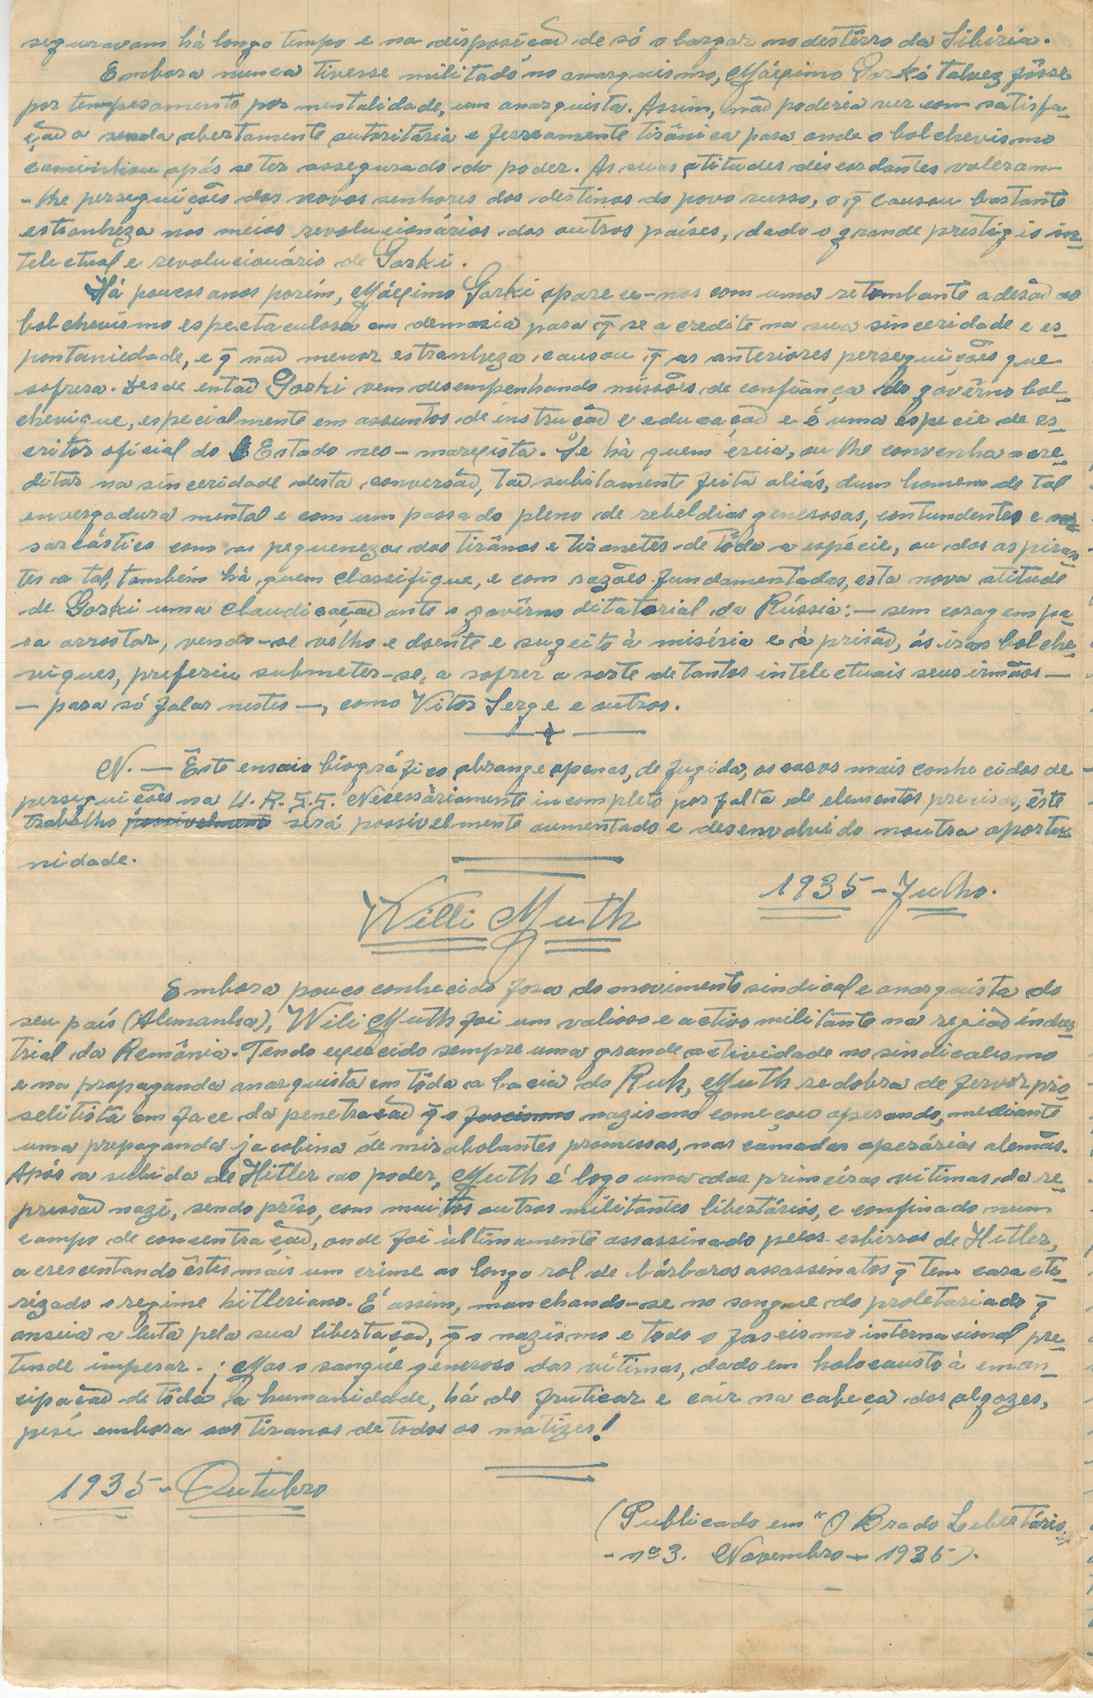 seguravam há longo tempo e na disposição de só o largar no destêrro da Sibéria.
Embora nunca tivesse militado no anarquismo, Máximo Gorki talvez fôsse
por temperamento, por mentalidade, um anarquista. Assim, não poderia ver com satisfa-
ção a senda abertamente autoritária e ferreamente tirânica para onde o bolchevismo
caminhou após se ter assegurado do poder. As suas atitudes discordantes valeram-
-lhe perseguições dos novos senhores dos destinos do povo russo, o q̄ causou bastante
estranheza nos meios revolucionários dos outros países, dado o grande prestígio in-
telectual e revolucionário de Gorki.
Há poucos anos porém, Máximo Gorki aparece-nos com uma retumbante adesão ao
bolchevismo espectaculosa em demasia para q̄ se acredite na sua sinceridade e es-
pontaniedade, e q̄ não menor estranheza causou q̄ as anteriores perseguições que
sofrera. Desde então Gorki vem desempenhando missões de confiança do govêrno bol-
chevique, especialmente em assuntos de instrução e educação e é uma espécie de es-
critor oficial do Estado neo-marxista. Se há quem creia, ou lhe convenha acre-
ditar na sinceridade desta conversão, tão subitamente feita aliás, dum homem de tal
envergadura mental e com um passado pleno de rebeldias generosas, contundente e
sarcástico com as pequenezas dos tirânos e tiranetes de tôda a espécie, ou dos aspiran-
tes a tal, também há quem classifique, e com razões fundamentadas, esta nova atitude
de Gorki uma claudicação ante o govêrno ditatorial da Rússia: — sem coragem pa-
ra arrostar, vendo-se velho e doente e sugeito à miséria e à prisão, ás iras bolche-
viques, preferiu submeter-se, a sofrer a sorte de tantos intelectuais seus irmãos —
— para só falar nestes —, como Vitor Serge e outros.
N. — Êste ensaio biográfico abrange apenas, de fugida, os casos mais conhecidos de
perseguições na U.R.S.S. Necessàriamente incompleto por falta de elementos precisos, êste
trabalho possivelmente será possivelmente aumentado e desenvolvido noutra oportu-
nidade.
1935 - Julho.
Willi Muth
Embora pouco conhecido fora do movimento sindical e anarquista do
seu país (Alemanha), Wili Muth foi um valioso e activo militante na região indus-
trial da Renânia. Tendo exercido sempre uma grande actividade no sindicalismo
e na propaganda anarquista em tôda a bacia do Ruhr, Muth redobra de fervor pro-
selitista em face da penetração q̄ o fascismo nazismo começou operando, mediante
uma propaganda jacobina de mirabolantes promessas, nas camadas operárias alemãs.
Após a subida de Hitler ao poder, Muth é logo uma das primeiras vitimas da re-
pressão nazi, sendo prêso, com muitos outros militantes libertários, e confinado num
campo de concentração, onde foi ùltimamente assassinado pelos esbirros de Hitler,
acrescentando êstes mais um crime ao longo rol de bárbaros assassinatos q̄ tem caracte-
rizado o regime hitleriano. É assim, manchando-se no sangue do proletariado q̄
anseia e luta pela sua libertação, q̄ o nazismo e todo o fascismo internacional pre-
tende imperar. ¡Mas o sangue generoso das vítimas, dado em holocausto à eman-
cipação de tôda a humanidade, há de frutificar e caír na cabeça dos algozes,
pesé embora aos tiranos de todos os matizes!
1935 - Outubro
(Publicado em "O Brado Libertário"
- nº 3. Novembro - 1935).